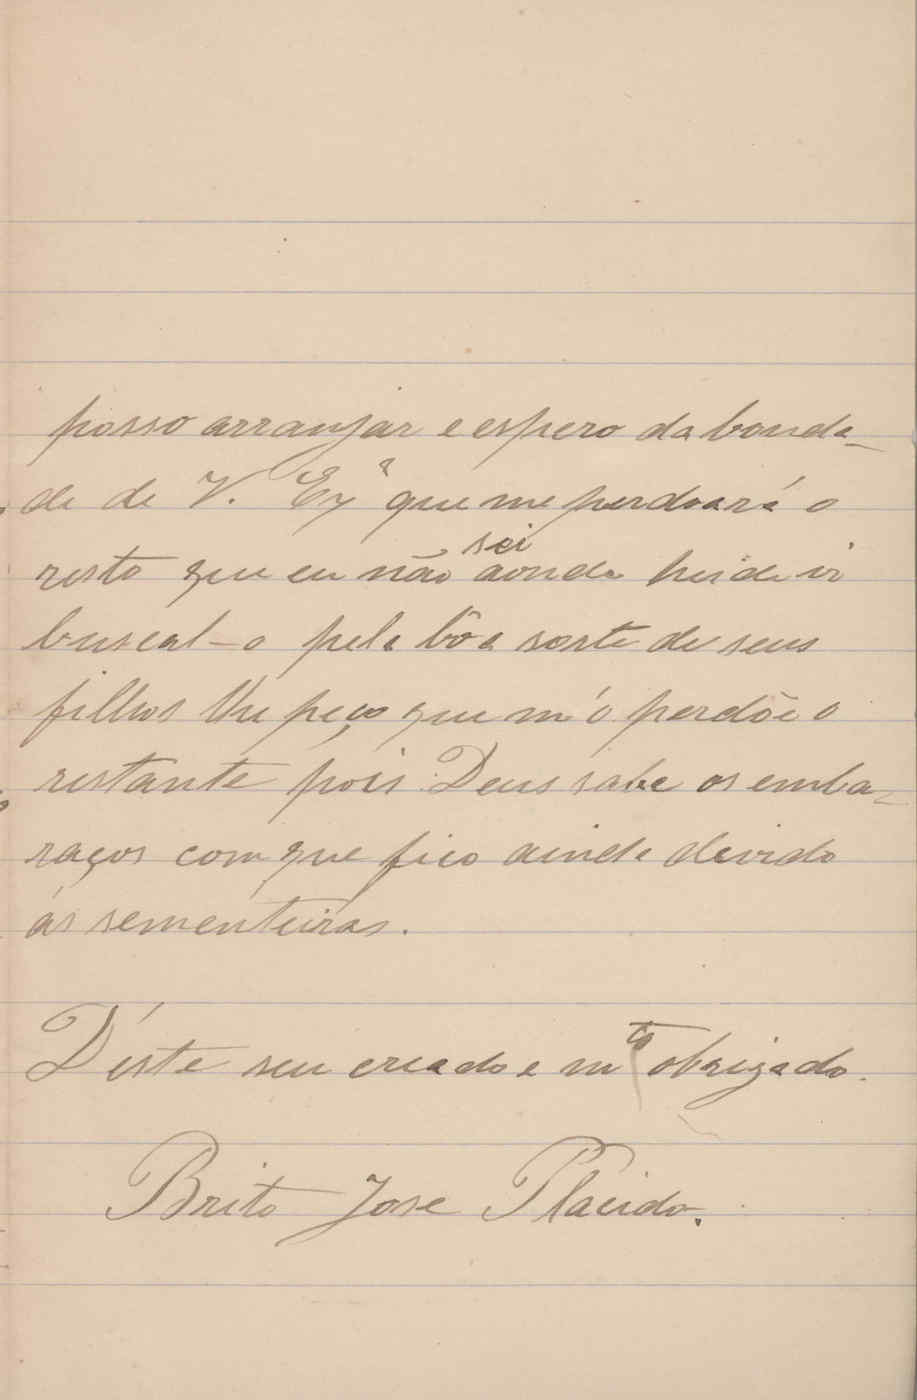 posso arranjar e espero da bonda-
de de V. Exª que me perdoará o
resto que eu não sei aonde heide ir
buscal-o pela bôa sorte de seus
filhos lhe peço que m'o perdõe o
restante pois Deus sabe os emba-
raços com que fico ainda devido
ás sementeiras.
D'éste seu creado e mto obrigado.
Brito Jose Placido.